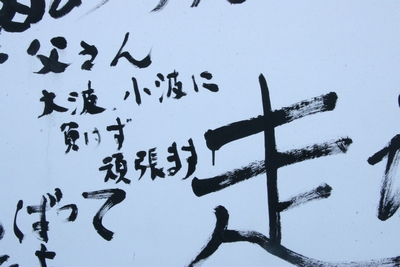 父さん
大波、小波に
負けず
頑張羽
ばって
走